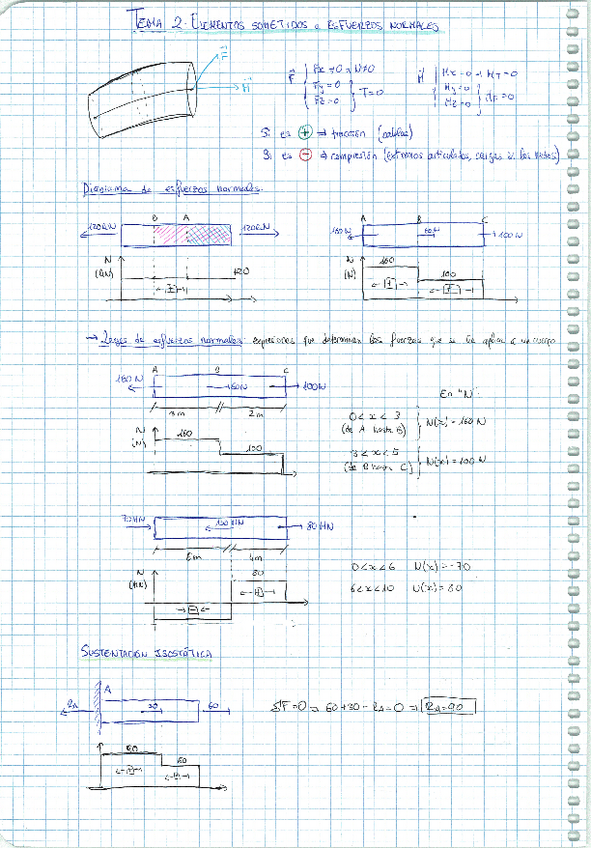 TEMA 2. ELEMENTOS SOMETIDOS a ESFUERZOS NORMALES
F { Fx ≠ 0, N≠0
Fy = 0
Fz = 0 } T=0
M { Mx = 0 , MT = 0
My = 0
Mz = 0 } MF = 0
F
M
Si es + ⇒ tracción (cables)
Si es - ⇒ compresión (extremos articulados, cargas en los nudos)
Diagrama de esfuerzos normales.
B A
120KN 120KN
N
(KN)
120
A B C
160N 60N 100N
N
(N)
160
100
→ Leyes de esfuerzos normales: expresiones que determinan las fuerzas que se
A B C
160N 100N
3m 2m
N
(N)
160
100
En "N":
0 < x < 3
(de A hasta B) } N(x) = 160 N
3 < x < 5
(de B hasta C) } N(x) = 100 N
70KN 80KN
6m 4m
N
(KN)
80
0<x<6 N(x) = -70
6<x<10 N(x) = 80
SUSTENTACIÓN ISOSTÁTICA
A
RA 30 60
ΣF=0 ⇒ 60+30-RA=0 ⇒ RA=90